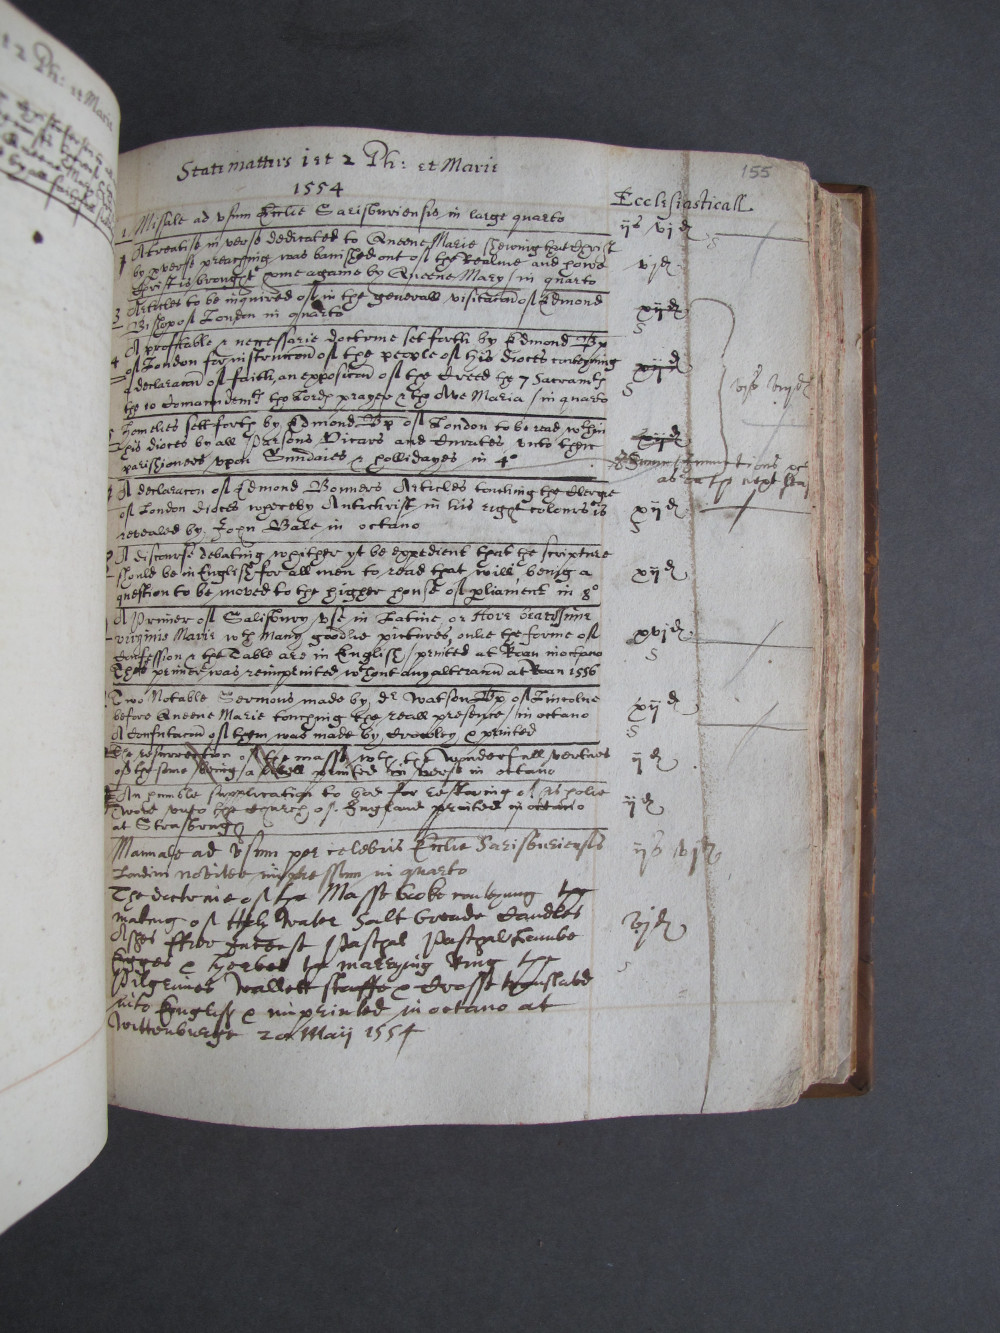 155
State matters 1 et 2 Ph: et Marie
1554
Ecclesiasticall
1 Missale ad usum Ecclie Sarisburiensis in large quarto ijs vjd
A treatise in verse dedicated to Queene Marie shewing that Christ
by pverse preaching was banished out of the Realme and howe
Christ is brought home againe by Queene Mary / in quarto vjd
3 Articles to be inquired of in the generall visitacon of Edmond
Bishop of London in quarto xijd
4 A profitable & necessarie doctrine set forth by Edmond Bp
of London for instruccon of the people of his dioces conteyning
a declaracon of faith, an exposicon of the Creed the 7 Sacramts
the 10 Comaundemts the Lords prayer & the Ave Maria / in quarto xijd
5 Homelies sett forth by Edmond Bp of London to be read wthin
his dioces by all Persons Vicars and Curates unto their
parishioners upon Sundaies & hollidayes in 4o xijd
A declaracon of Edmond Bonners Articles touching the Clergie
of London dioces whereby Antichrist in his right colours is
revealed by John Bale in octavo xijd
A discourse debating whither yt be expedient that the scripture
should be in English for all men to read that will, being a
question to be moved to the higher house of pliament in 8o xijd
A Primer of Salisbury use in Latine, or Hore beatissime
virginis Marie wth many goodlie pictures, onlie the forme of
Confession & the Table are in English / printed at Roan in octavo
This primer was reimprinted wthout any alteracon at Roan 1556 xvjd
Two Notable Sermons made by dr Watson Bp of Lincolne
before Queene Marie touching the reall presence / in octavo
A Confutacon of them was made by Crowley & printed xijd
The resurrection of the masse, wth the Wonderfull vertues
of the same being a printed in verse in octavo ijd
An humble supplication to God for restoring of his holie
Word unto the Church of England printed in octavo
at Strasburg ijd
Manuale ad Usum per celebris Ecclie Sarisburiensis
Londini noviter impressum in quarto ijs vjd
The doctrine of the Masse booke conteyning the
making of Holy Water Salt breade Candles
Ashes Fier Insence Paschal Paschal Lambe
Egges & Herbes the marrying Ring the
Pilgrimes Wallett staffe & Crosse translated
into English & imprinted in octavo at
Wittenburge 20 Maij 1554 vjd